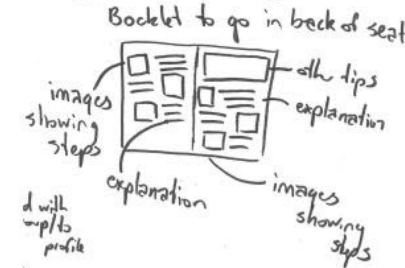 Booklet to go in back of seat
images
showing
steps
oth tips
explanation
explanation
images
showing
steps
d with
profile